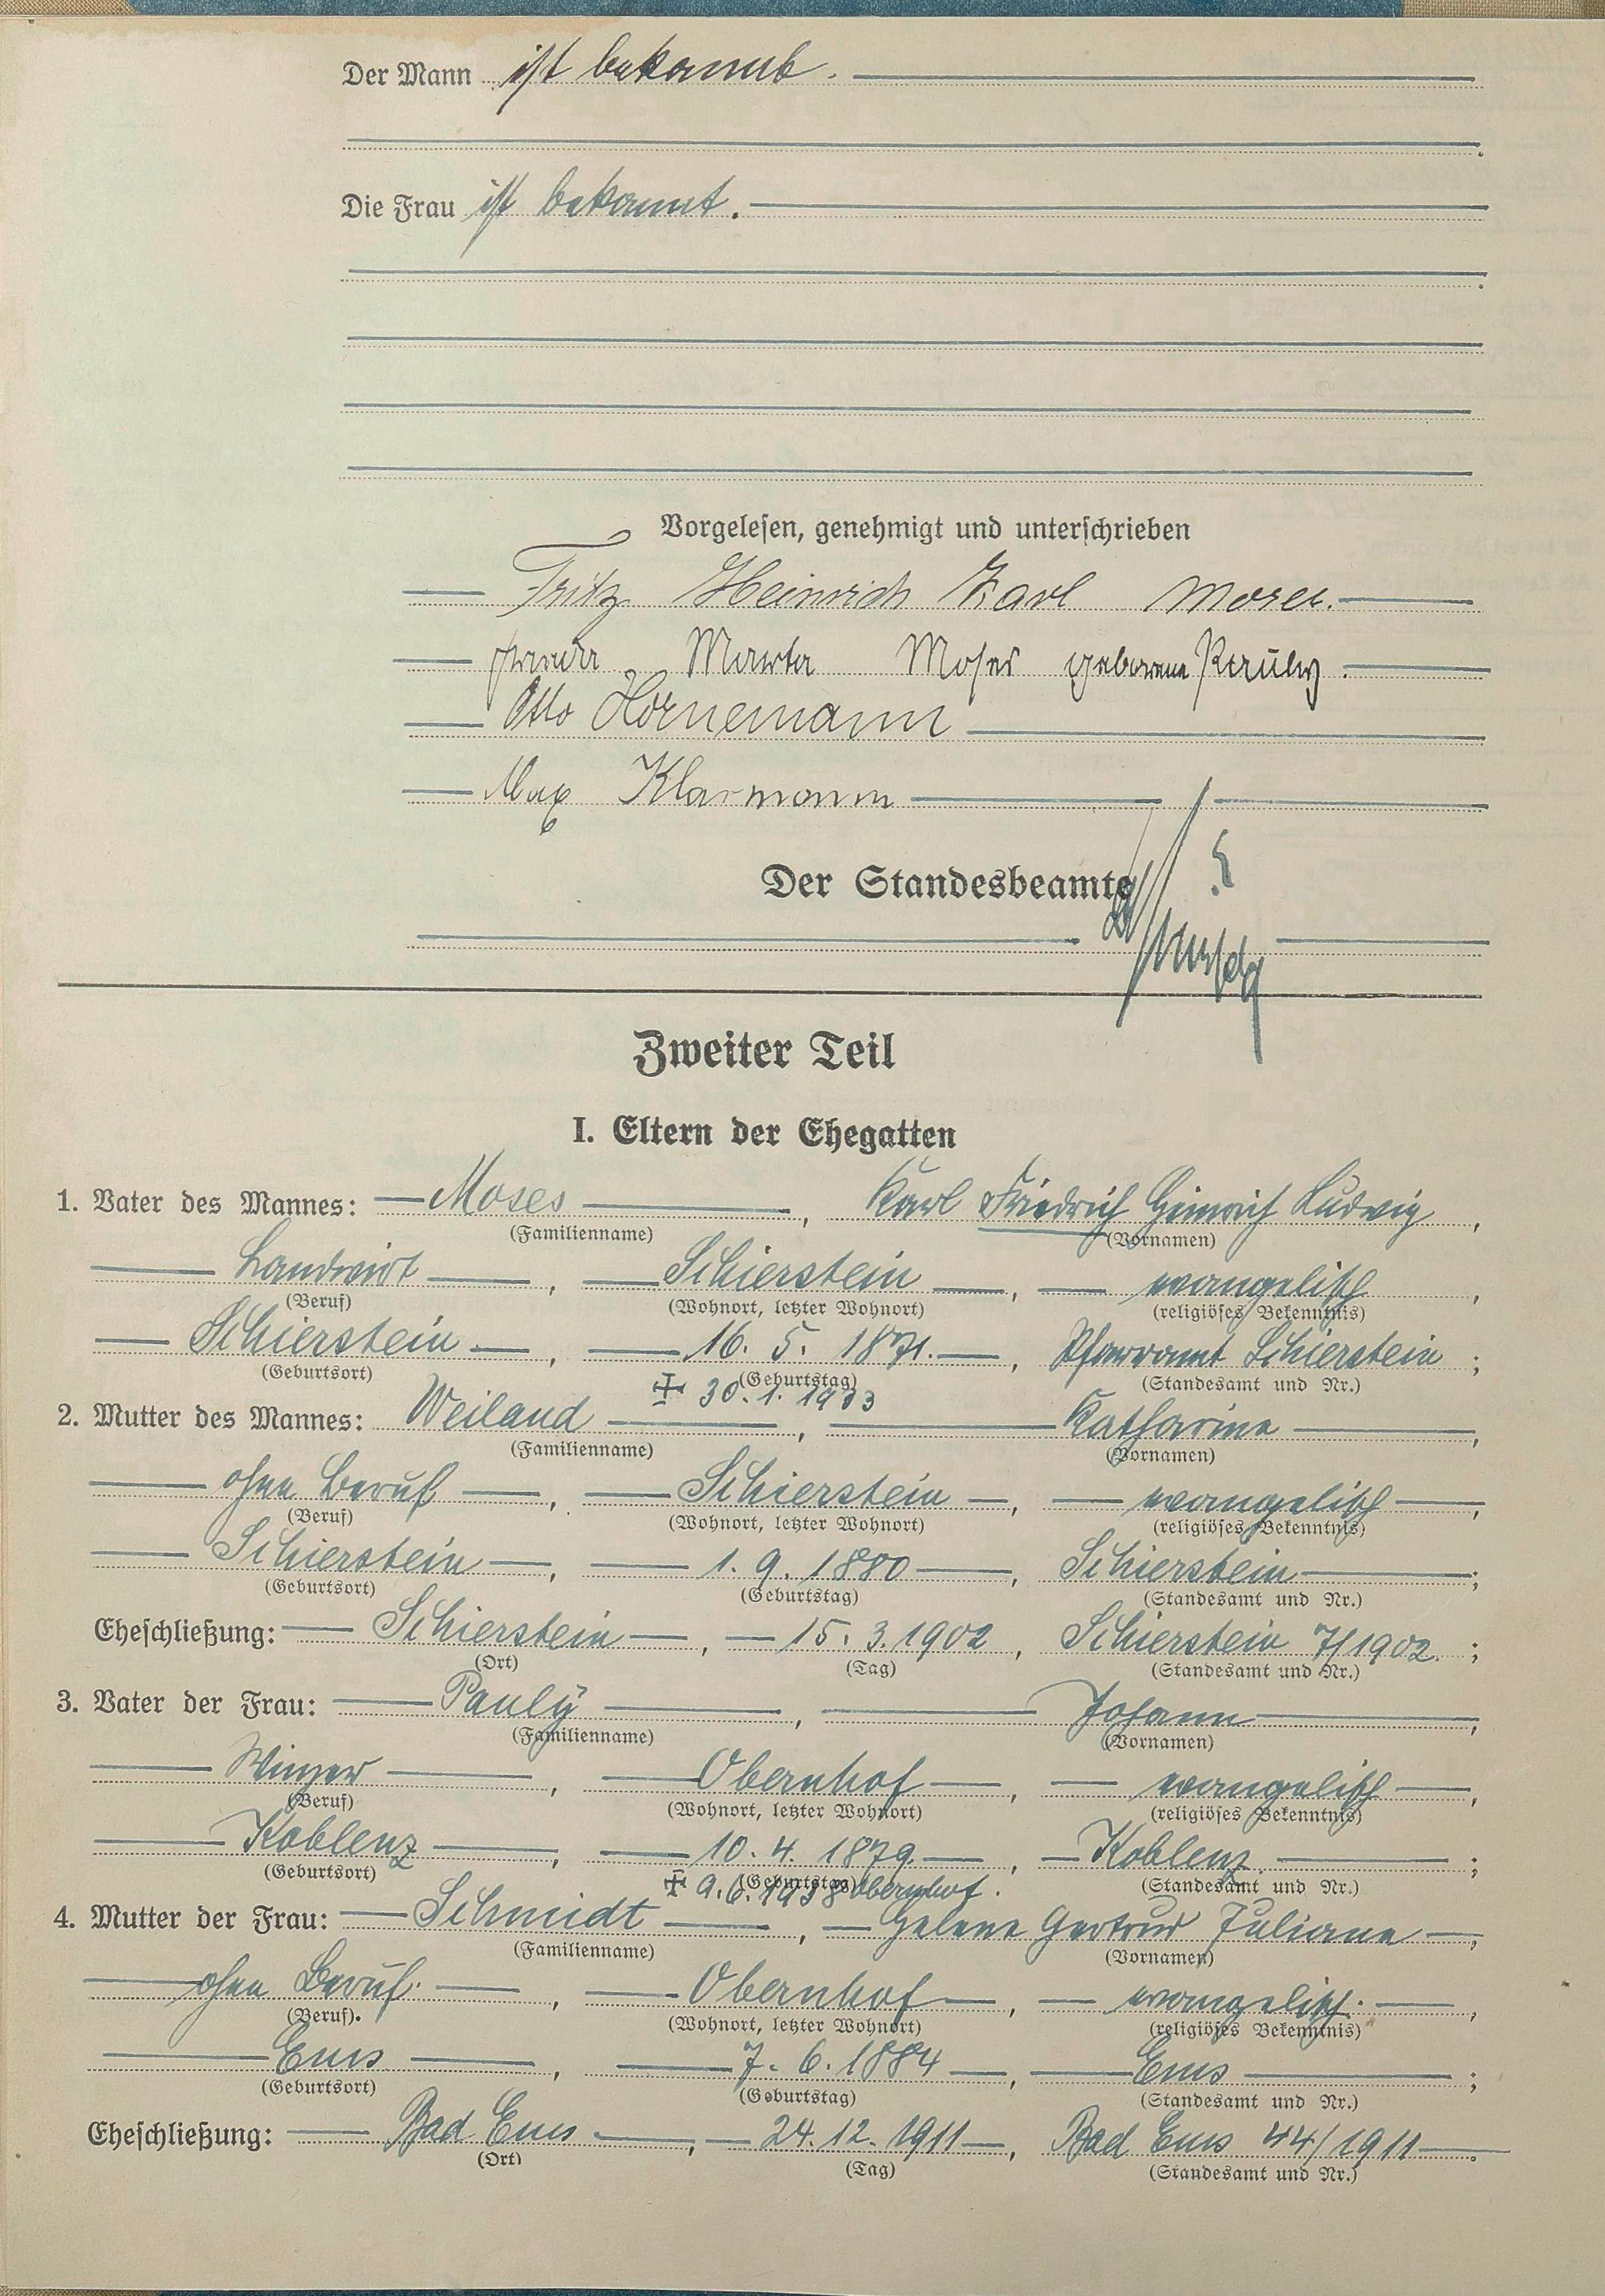 Der Mann ist bekannt.
Die Frau ist bekannt.
Vorgelesen, genehmigt und unterschrieben
Fritz Heinrich Karl Moses.
Marta Moses geborene Pauly.
Otto Hornemann
Max Klarmann
Der Standesbeamte
Zweiter Teil
I. Eltern der Ehegatten
1. Vater des Mannes: Moses, Karl Friedrich Heinrich Ludwig,
(Familienname) (Vornamen)
Landwirt, Schierstein, evangelisch,
(Beruf) (Wohnort, letzter Wohnort) (religiöses Bekenntnis)
Schierstein, 16. 5. 1871., Pfarramt Schierstein;
(Geburtsort) (Geburtstag) (Standesamt und Nr.)
✠ 30. 1. 1933
2. Mutter des Mannes: Weiland, Katharine,
(Familienname) (Vornamen)
ohne Beruf, Schierstein, evangelisch,
(Beruf) (Wohnort, letzter Wohnort) (religiöses Bekenntnis)
Schierstein, 1. 9. 1880, Schierstein;
(Geburtsort) (Geburtstag) (Standesamt und Nr.)
Eheschließung: Schierstein, 15. 3. 1902, Schierstein 7/1902.;
(Ort) (Tag) (Standesamt und Nr.)
3. Vater der Frau: Pauly, Johann,
(Familienname) (Vornamen)
Winzer, Obernhof, evangelisch,
(Beruf) (Wohnort, letzter Wohnort) (religiöses Bekenntnis)
Koblenz, 10. 4. 1879., Koblenz.;
(Geburtsort) (Geburtstag) (Standesamt und Nr.)
✠ 9. 6. 1938 Obernhof.
4. Mutter der Frau: Schmidt, Helene Gertrud Juliane,
(Familienname) (Vornamen)
ohne Beruf., Obernhof, evangelisch.,
(Beruf). (Wohnort, letzter Wohnort) (religiöses Bekenntnis)
Ems, 7. 6. 1884, Ems;
(Geburtsort) (Geburtstag) (Standesamt und Nr.)
Eheschließung: Bad Ems, 24. 12. 1911, Bad Ems 44/1911.
(Ort) (Tag) (Standesamt und Nr.)